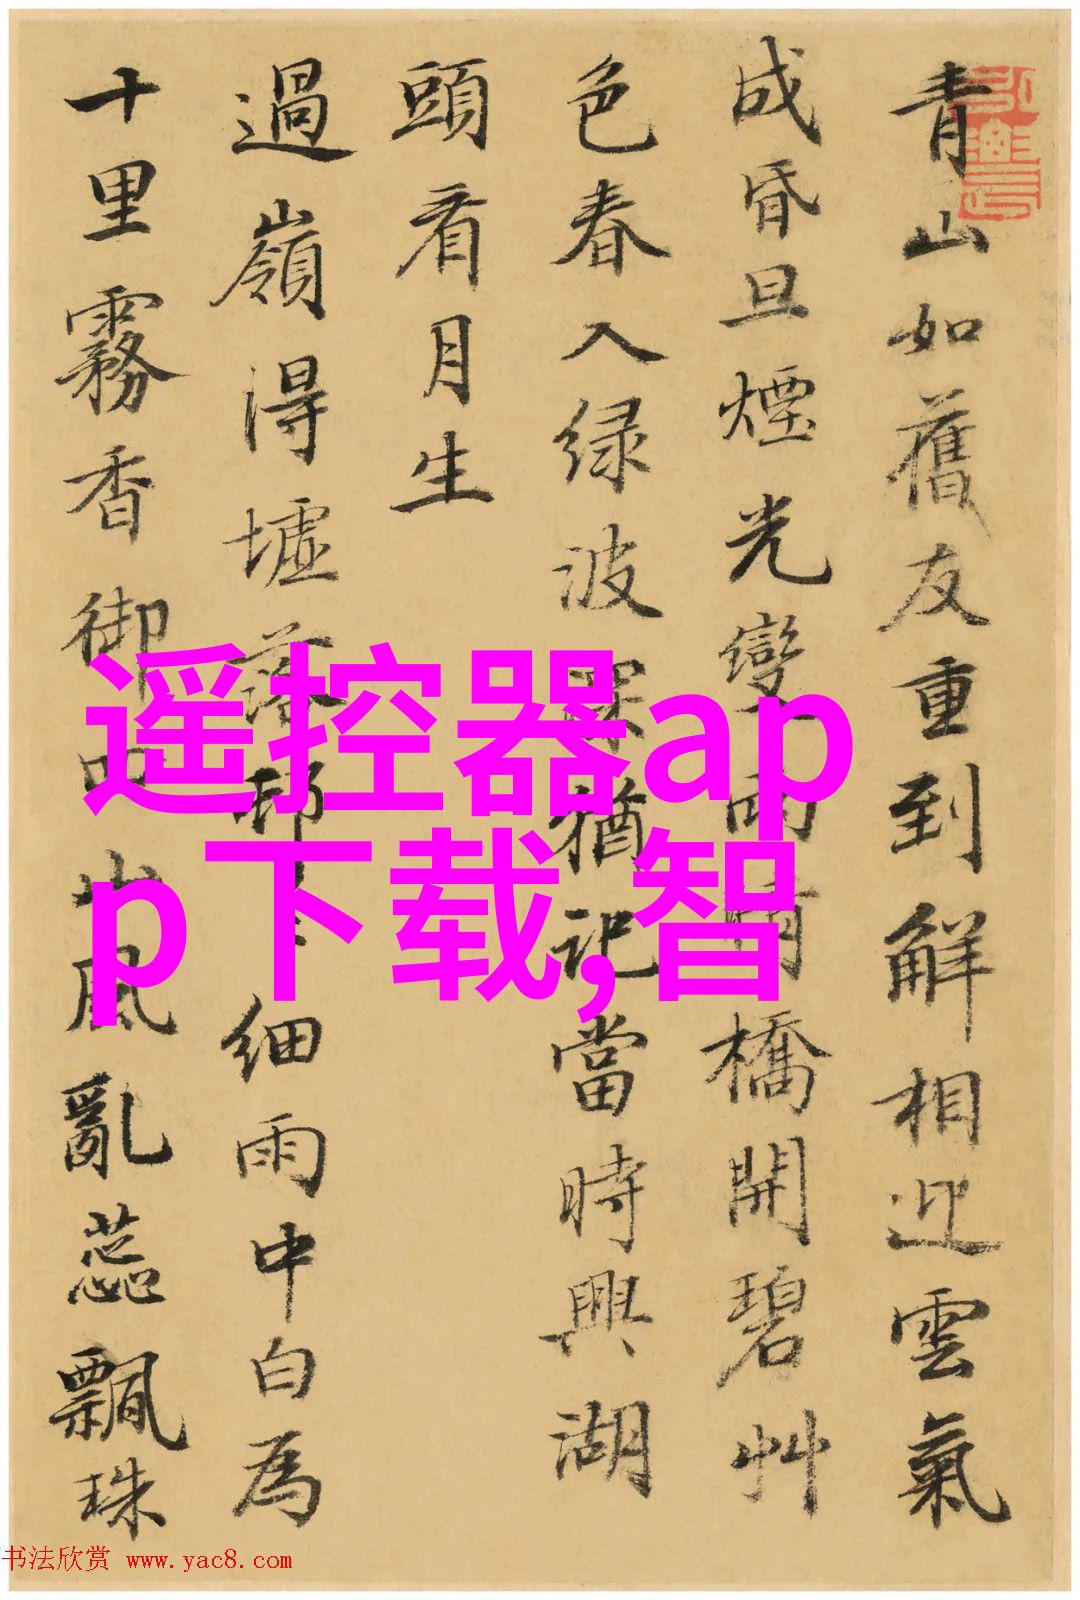 青山如舊友重到解相迎雲氣
成昏旦煙光變雨晴橋開碧艸
色春入绿波深猶記當時興湖
頭看月生
過嶺得墟落邨細雨中白為
十里霧香御風亂蕊飄珠
遥控器ap
p下载,智
书法欣赏 www.yac8.com